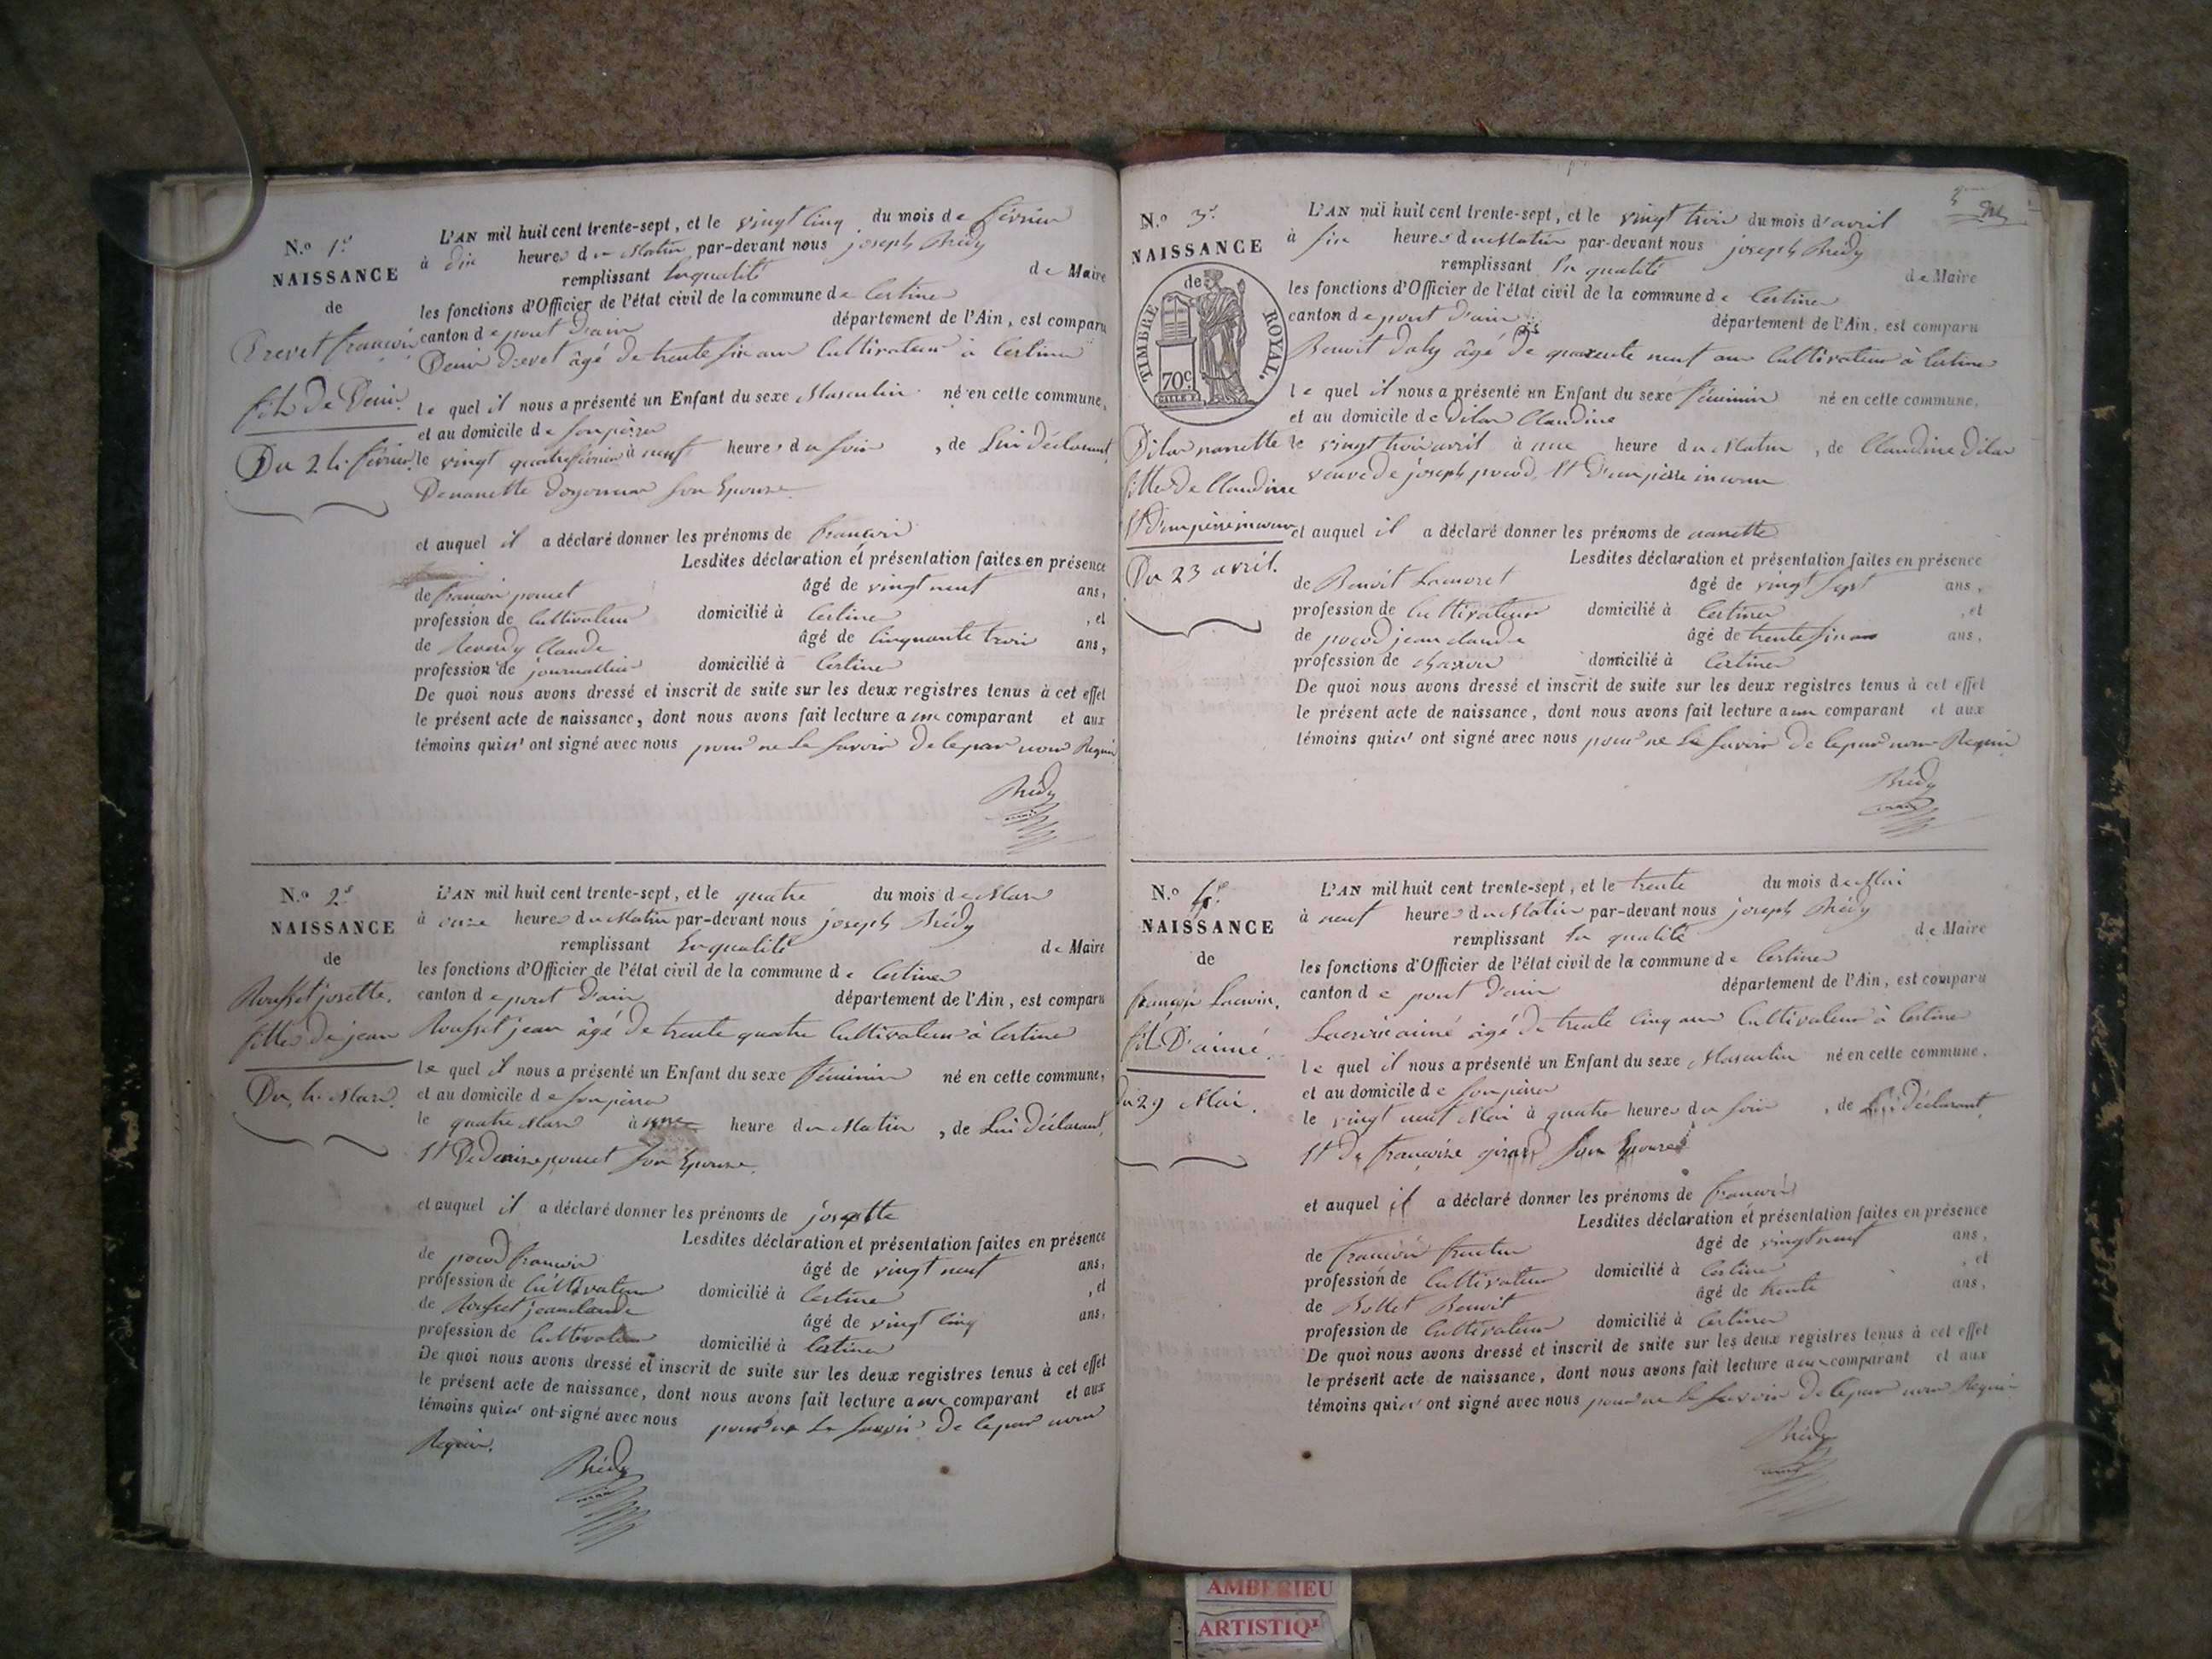 N.º 1.er
NAISSANCE
de
Drevet françois
fils de Denis.
Du 24 février.
L'AN mil huit cent trente-sept, et le vingt cinq du mois de février
à dix heures du Matin par-devant nous joseph Brédy
remplissant En qualité de Maire
les fonctions d'Officier de l'état civil de la commune de Certines
canton de pont d'ain département de l'Ain, est comparu
Denis Drevet âgé de trente six ans Cultivateur à Certines
le quel il nous a présenté un Enfant du sexe Masculin né en cette commune,
et au domicile de son père
le vingt quatre février à neuf heures du soir, de Lui Déclarant,
De nanette son Epouse
et auquel il a déclaré donner les prénoms de françois
Lesdites déclaration et présentation faites en présence
de françois poncet âgé de vingt neuf ans,
profession de Cultivateur domicilié à Certines, et
de Claude âgé de Cinquante trois ans,
profession de journallier domicilié à Certines
De quoi nous avons dressé et inscrit de suite sur les deux registres tenus à cet effet
le présent acte de naissance, dont nous avons fait lecture au comparant et aux
témoins qui n'ont signé avec nous pour ne le savoir De Cepar nous Requis
Brédy
N.º 2.
NAISSANCE
de
Rousset josette.
fille de jean
Du 4 Mars.
L'AN mil huit cent trente-sept, et le quatre du mois de Mars
à onze heures du Matin par-devant nous joseph Brédy
remplissant En qualité de Maire
les fonctions d'Officier de l'état civil de la commune de Certines
canton de pont d'ain département de l'Ain, est comparu
Rousset jean âgé de trente quatre Cultivateur à Certines
le quel il nous a présenté un Enfant du sexe féminin né en cette commune,
et au domicile de son père
le quatre Mars à une heure du Matin, de Lui Déclarant,
Et De Denise poncet son Epouse.
et auquel il a déclaré donner les prénoms de josette
Lesdites déclaration et présentation faites en présence
de pocod françois âgé de vingt neuf ans,
profession de Cultivateur domicilié à Certines, et
de Rousset jean claude âgé de vingt cinq ans,
profession de Cultivateur domicilié à Certines
De quoi nous avons dressé et inscrit de suite sur les deux registres tenus à cet effet
le présent acte de naissance, dont nous avons fait lecture au comparant et aux
témoins qui n'ont signé avec nous pour ne le savoir De Cepar nous
Requis.
Brédy
N.º 3.
NAISSANCE
de
TIMBRE ROYAL.
70c
Dilas nanette
fille de Claudine
Et D'un père inconnu
Du 23 avril.
L'AN mil huit cent trente-sept, et le vingt trois du mois d'avril
à six heures du Matin par-devant nous joseph Brédy
remplissant En qualité de Maire
les fonctions d'Officier de l'état civil de la commune de Certines
canton de pont d'ain département de l'Ain, est comparu
Benoit Daby âgé de quarente neuf ans Cultivateur à Certines
le quel il nous a présenté un Enfant du sexe féminin né en cette commune,
et au domicile de Dilas Claudine
le vingt trois avril à une heure du Matin, de Claudine Dilas
veuve de joseph pocod, Et D'un père inconnu
et auquel il a déclaré donner les prénoms de nanette
Lesdites déclaration et présentation faites en présence
de Benoit âgé de vingt sept ans,
profession de Cultivateur domicilié à Certines, et
de pocod jean claude âgé de trente six ans ans,
profession de charron domicilié à Certines
De quoi nous avons dressé et inscrit de suite sur les deux registres tenus à cet effet
le présent acte de naissance, dont nous avons fait lecture au comparant et aux
témoins qui n'ont signé avec nous pour ne le savoir De Cepar nous Requis
Brédy
N.º 4.
NAISSANCE
de
françois Lacroix.
fils D'aimé.
Du 29 Mai.
L'AN mil huit cent trente-sept, et le trente du mois de Mai
à neuf heures du Matin par-devant nous joseph Brédy
remplissant En qualité de Maire
les fonctions d'Officier de l'état civil de la commune de Certines
canton de pont d'ain département de l'Ain, est comparu
Lacroix aimé âgé de trente cinq ans Cultivateur à Certines
le quel il nous a présenté un Enfant du sexe Masculin né en cette commune,
et au domicile de son père
le vingt neuf Mai à quatre heures du soir, de Lui Déclarant
Et De françoise girard son Epouse
et auquel il a déclaré donner les prénoms de françois
Lesdites déclaration et présentation faites en présence
de françois âgé de vingt neuf ans,
profession de Cultivateur domicilié à Certines, et
de Bollet Benoit âgé de trente ans,
profession de Cultivateur domicilié à Certines
De quoi nous avons dressé et inscrit de suite sur les deux registres tenus à cet effet
le présent acte de naissance, dont nous avons fait lecture au comparant et aux
témoins qui n'ont signé avec nous pour ne le savoir De Cepar nous Requis
Brédy
AMBERIEU
ARTISTIQ